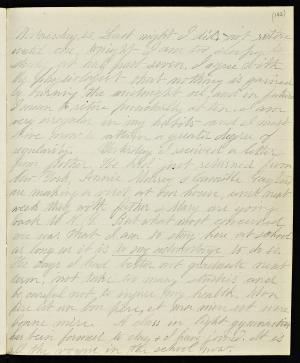 (182)
Wednesday, 20, Last night I did not retire
until one, tonight I am too sleepy to
study at half past seven. I agree with
my physiologist that nothing is gained
by burning the midnight oil, and in future
I mean to retire punctually at ten. I am
very irregular in my habits and I must
strive to attain a greater degree of
regularity. Yesterday I received a letter
from Mother. He has just returned from
New York, Fannie
are making a visit at our house, until next
week they with father & Mary are going
back to N.Y. But what most concerned
me was that I am to stay here at school
as long as it is to my advantage to do so.
He says I had better not graduate next
term, not take too many studies and
be careful not to injure my health.
A class in light gymnastics
has been formed to-day,
all the vogue in the school now.